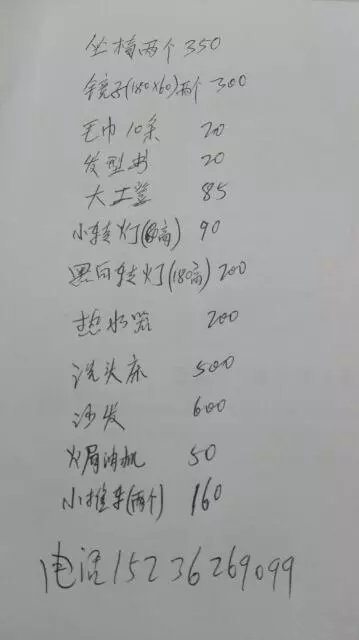 坐椅两个 350
镜子(180×60)两个 300
毛巾10条 20
发型书 20
大工凳 85
小转灯(60高) 90
黑白转灯(180高) 200
热水器 200
洗头床 500
沙发 600
火局油机 50
小推车(两个) 160
电话15236269099